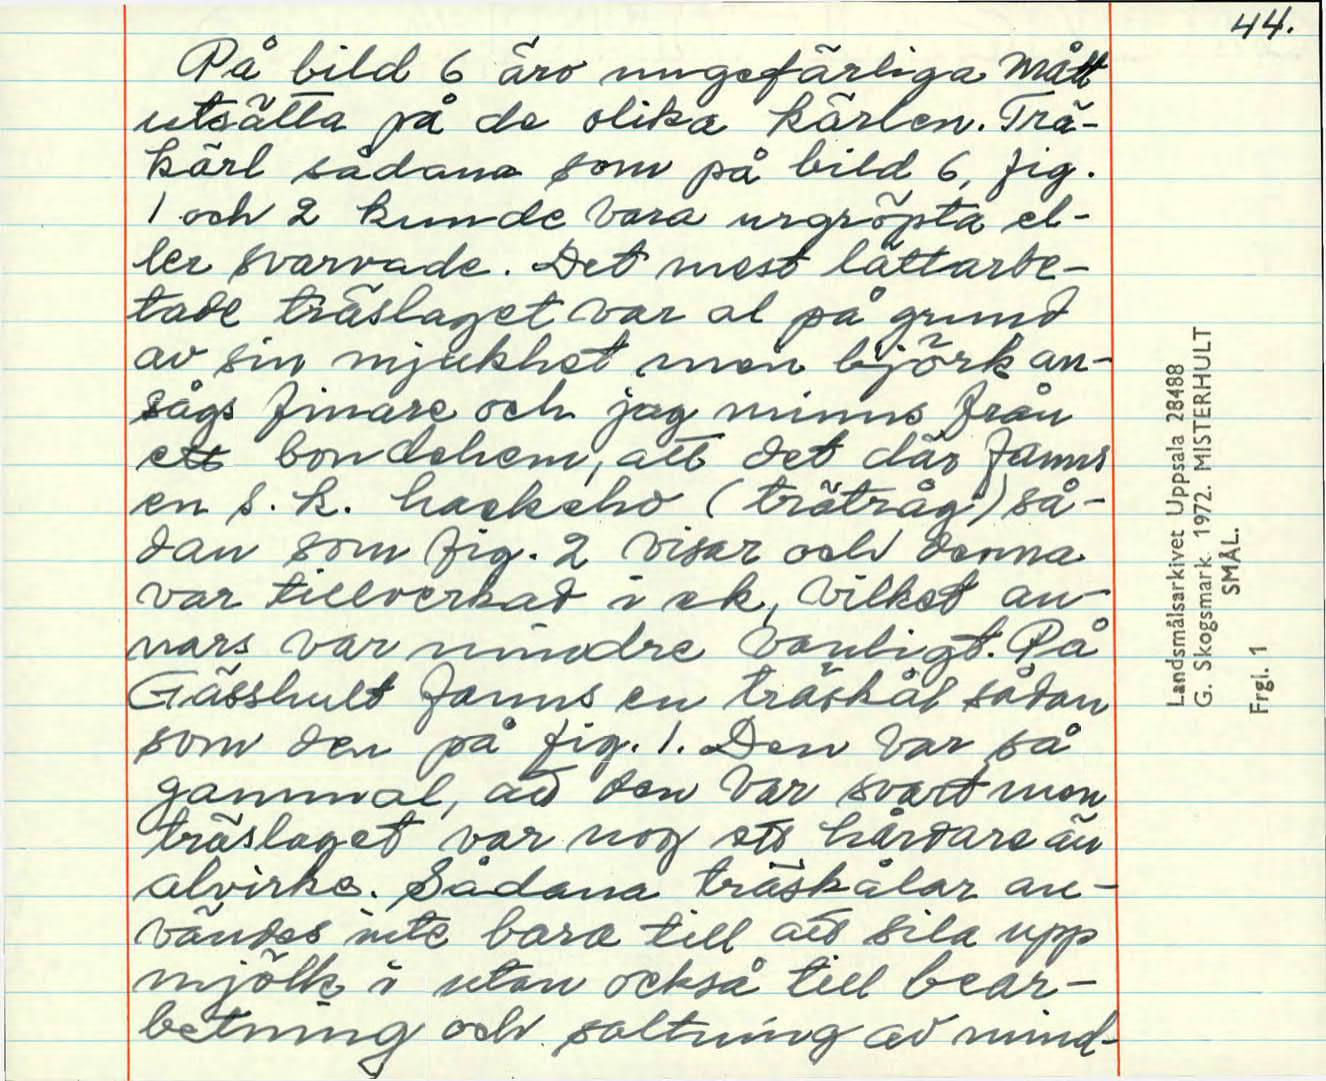 44.
På bild 6 äro ungefärliga mått
utsätta på de olika kärlen. Trä-
kärl sådana som på bild 6, fig.
1 och 2 kunde vara urgröpta el-
ler svarvade. Det mest lättarbe-
tade träslaget var al på grund
av sin mjukhet men björk an-
sågs finare och jag minns från
ett bondehem, att det där fanns
en s.k. hackeho (träträg) så-
dan som fig. 2 visar och denna
var tillverkad i ek, vilket an-
nars var mindre vanligt. På
Gässhult fanns en träskål sådan
som den på fig. 1. Den var så
gammal, att den var svart men
träslaget var nog ett hårdare än
alvirke. Sådana träskålar an-
vändes inte bara till att sila upp
mjölk i utan också till bear-
betning och saltning av mind-
Landsmålsarkivet Uppsala 28488
G. Skogsmark 1972. MISTERHULT
SMÅL.
Frgl. 1